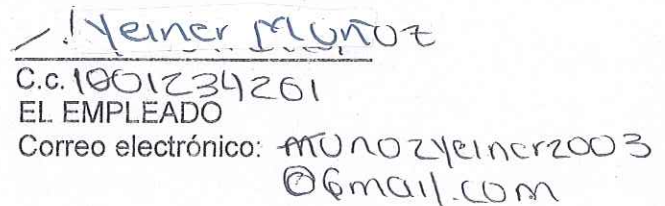 Yeiner Muñoz
C.c. 1001234261
EL EMPLEADO
Correo electrónico: munozyeiner2003
@Gmail.com